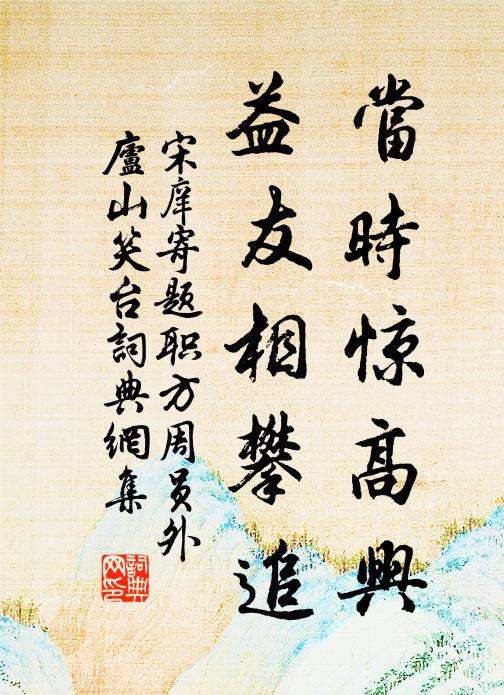 當時惊高興
益友相攀追
宋庠寄題职方周員外
廬山笑台詞典網集
詞典网印